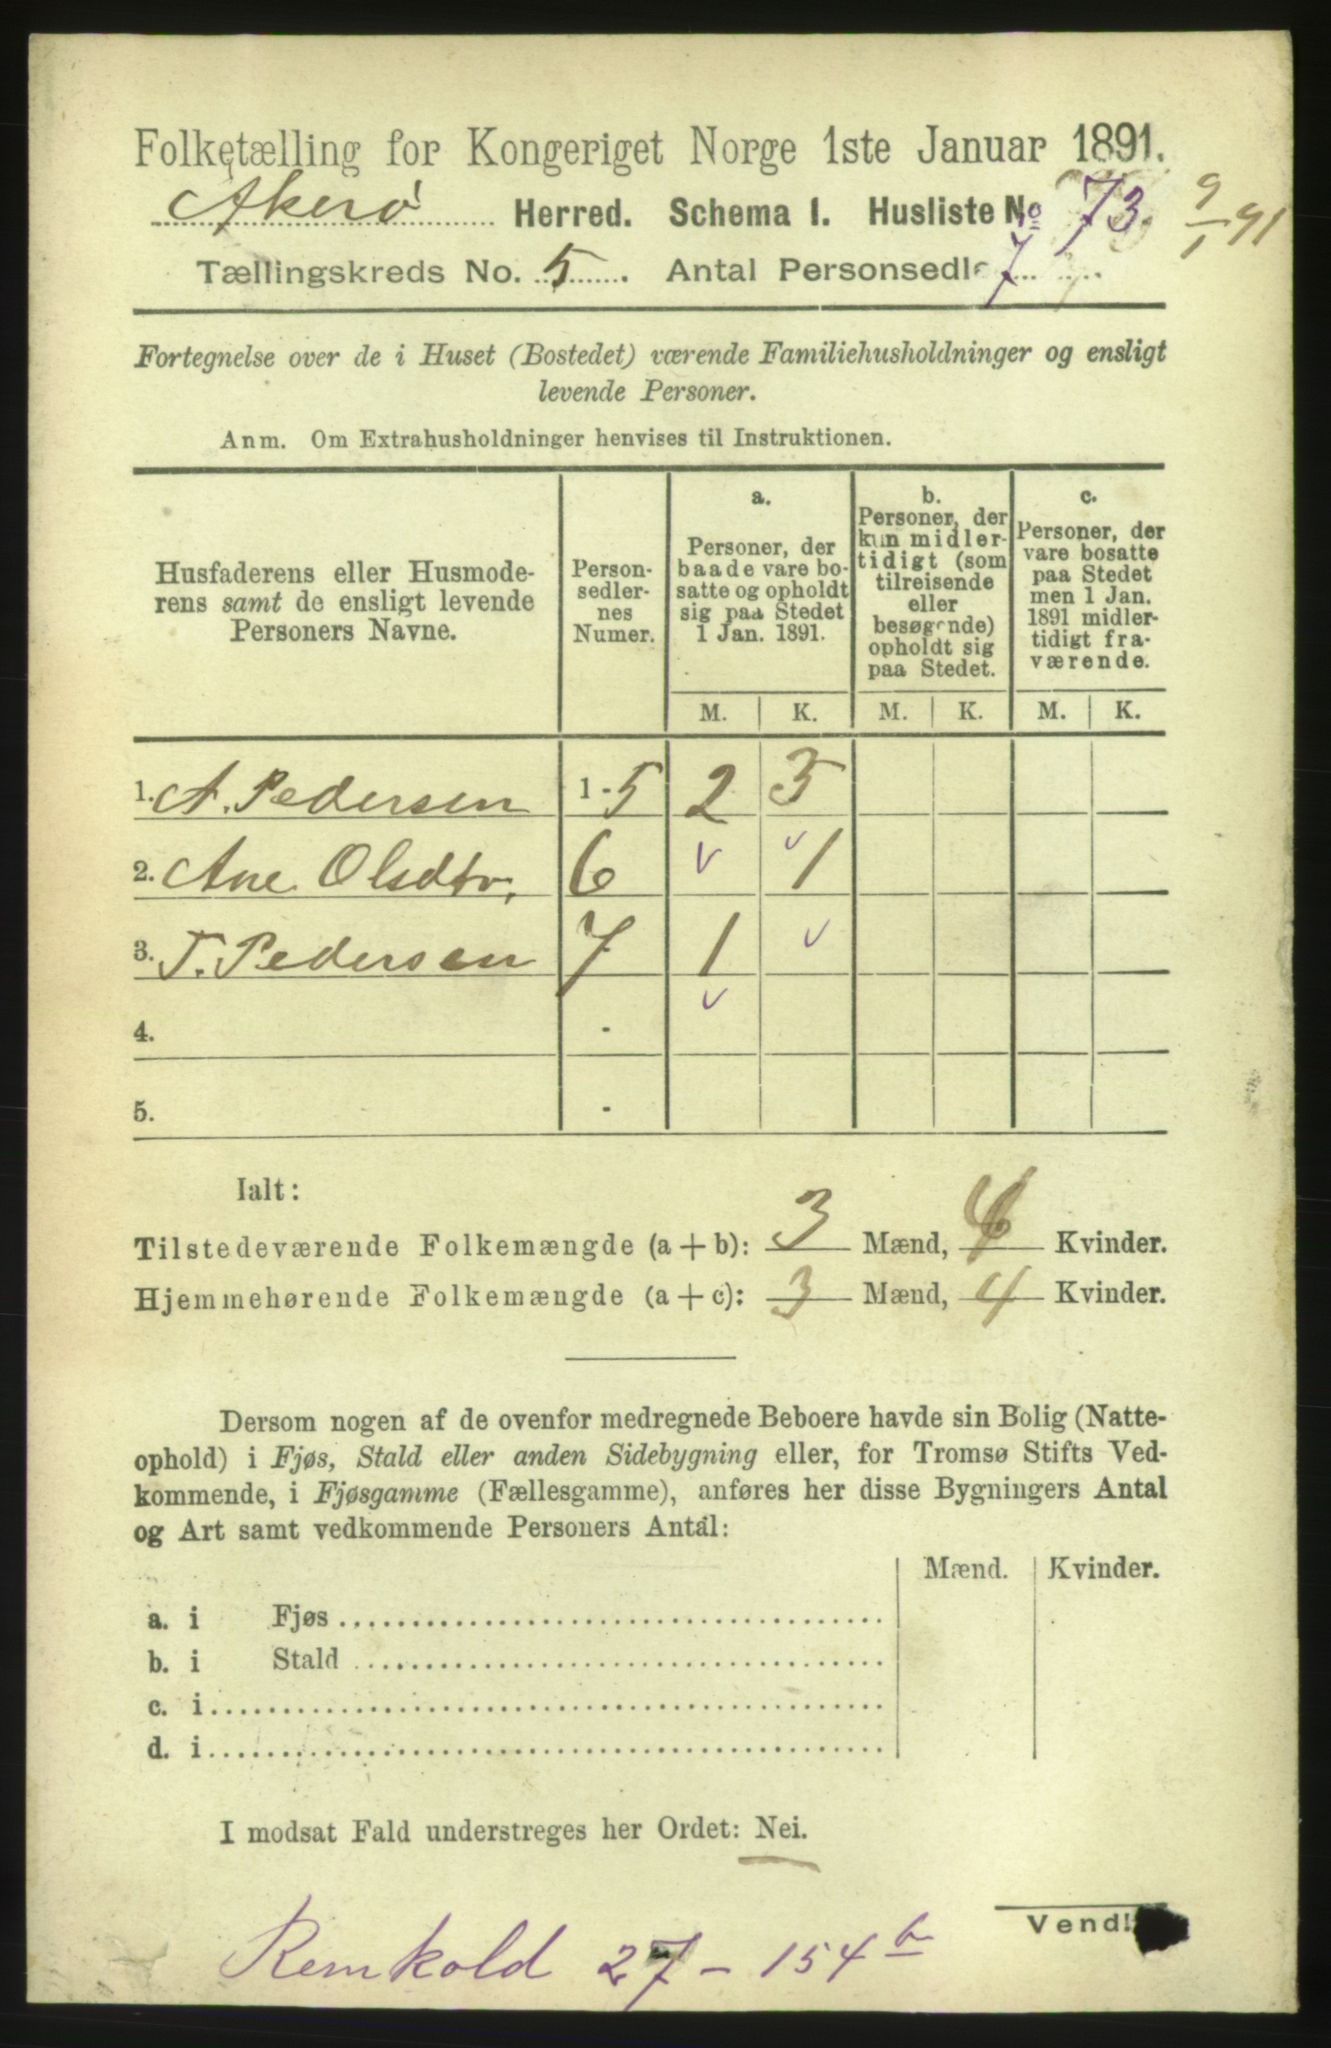 Folketælling for Kongeriget Norge 1ste Januar 1891.
Akerø Herred. Schema I. Husliste No 73. 9/1 91
Tællingskreds No. 5. Antal Personsedle 7
Fortegnelse over de i Huset (Bostedet) værende Familiehusholdninger og ensligt
levende Personer.
Anm. Om Extrahusholdninger henvises til Instruktionen.
Husfaderens eller Husmode-
rens samt de ensligt levende
Personers Navne.
Person-
sedler-
nes
Numer.
a.
Personer, der
baade vare bo-
satte og opholdt
sig paa Stedet
1 Jan. 1891.
b.
Personer, der
kun midler-
tidigt (som
tilreisende
eller
besøgende)
opholdt sig
paa Stedet.
c.
Personer, der
vare bosatte
paa Stedet
men 1 Jan.
1891 midler-
tidigt fra-
værende.
M. K. M. K. M. K.
1. A. Pedersen 1-5 2 3
2. Ane Olsdtr, 6 v v 1
3. T. Pedersen 7 1 v
4. - v
5. -
Ialt:
Tilstedeværende Folkemængde (a + b): 3 Mænd, 4 Kvinder.
Hjemmehørende Folkemængde (a + c): 3 Mænd, 4 Kvinder.
Dersom nogen af de ovenfor medregnede Beboere havde sin Bolig (Natte-
ophold) i Fjøs, Stald eller anden Sidebygning eller, for Tromsø Stifts Ved-
kommende, i Fjøsgamme (Fællesgamme), anføres her disse Bygningers Antal
og Art samt vedkommende Personers Antal:
Mænd. Kvinder.
a. i Fjøs
b. i Stald
c. i
d. i
I modsat Fald understreges her Ordet: Nei.
Vend!
Remkold 27 - 154 b